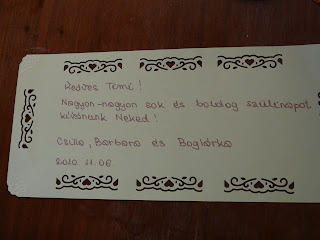 Kedves Timi!
Nagyon-nagyon sok és boldog szülinapot
kívánunk Neked!
Csilla, Barbara és Boglárka
2010. 11. 06.